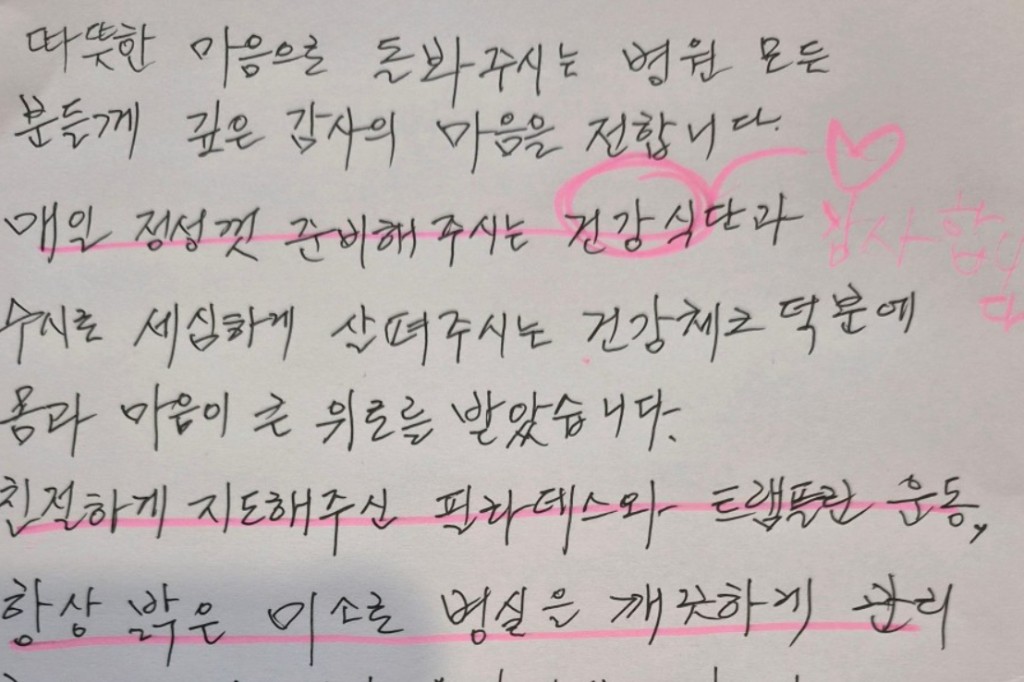 따뜻한 마음으로 돌봐주시는 병원 모든
분들께 깊은 감사의 마음을 전합니다.
매일 정성껏 준비해 주시는 건강식단과
감사합니다
수시로 세심하게 살펴주시는 건강체크 덕분에
몸과 마음이 큰 위로를 받았습니다.
친절하게 지도해주신 필라테스와 트램폴린 운동,
항상 밝은 미소로 병실을 깨끗하게 관리